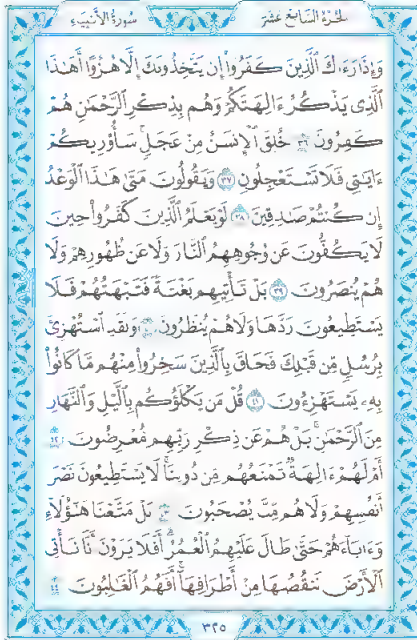 سُورَةُ الأَنْبِيَاءِ الجُزْءُ السَّابِعَ عَشَرَ
وَإِذَا رَءَاكَ ٱلَّذِينَ كَفَرُوٓاْ إِن يَتَّخِذُونَكَ إِلَّا هُزُوًا أَهَٰذَا
ٱلَّذِى يَذْكُرُ ءَالِهَتَكُمْ وَهُم بِذِكْرِ ٱلرَّحْمَٰنِ هُمْ
كَٰفِرُونَ ٣٦ خُلِقَ ٱلْإِنسَٰنُ مِنْ عَجَلٍ سَأُوْرِيكُمْ
ءَايَٰتِى فَلَا تَسْتَعْجِلُونِ ٣٧ وَيَقُولُونَ مَتَىٰ هَٰذَا ٱلْوَعْدُ
إِن كُنتُمْ صَٰدِقِينَ ٣٨ لَوْ يَعْلَمُ ٱلَّذِينَ كَفَرُواْ حِينَ
لَا يَكُفُّونَ عَن وُجُوهِهِمُ ٱلنَّارَ وَلَا عَن ظُهُورِهِمْ وَلَا
هُمْ يُنصَرُونَ ٣٩ بَلْ تَأْتِيهِم بَغْتَةً فَتَبْهَتُهُمْ فَلَا
يَسْتَطِيعُونَ رَدَّهَا وَلَا هُمْ يُنظَرُونَ ٤٠ وَلَقَدِ ٱسْتُهْزِئَ
بِرُسُلٍ مِّن قَبْلِكَ فَحَاقَ بِٱلَّذِينَ سَخِرُواْ مِنْهُم مَّا كَانُواْ
بِهِۦ يَسْتَهْزِءُونَ ٤١ قُلْ مَن يَكْلَؤُكُم بِٱلَّيْلِ وَٱلنَّهَارِ
مِنَ ٱلرَّحْمَٰنِ بَلْ هُمْ عَن ذِكْرِ رَبِّهِم مُّعْرِضُونَ ٤٢
أَمْ لَهُمْ ءَالِهَةٌ تَمْنَعُهُم مِّن دُونِنَا لَا يَسْتَطِيعُونَ نَصْرَ
أَنفُسِهِمْ وَلَا هُم مِّنَّا يُصْحَبُونَ ٤٣ بَلْ مَتَّعْنَا هَٰٓؤُلَآءِ
وَءَابَآءَهُمْ حَتَّىٰ طَالَ عَلَيْهِمُ ٱلْعُمُرُ أَفَلَا يَرَوْنَ أَنَّا نَأْتِى
ٱلْأَرْضَ نَنقُصُهَا مِنْ أَطْرَافِهَآ أَفَهُمُ ٱلْغَٰلِبُونَ ٤٤
٣٢٥